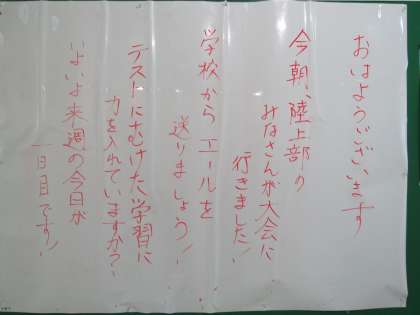 おはようございます
今朝、陸上部の
みなさんが大会に
行きました!
学校からエールを
送りましょう!
テストにむけた学習に
力を入れていますか?
いよいよ来週の今日が
一日目です!